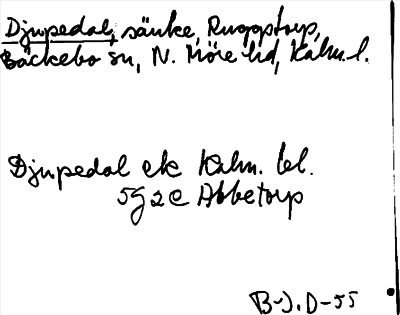 Djupedal, sänke, Ruggstorp,
Bäckebo sn, N. Möre hd, Kalm. l.
Djupedal ek Kalm. bl.
5G 2e Abbetorp
B-J. D-55